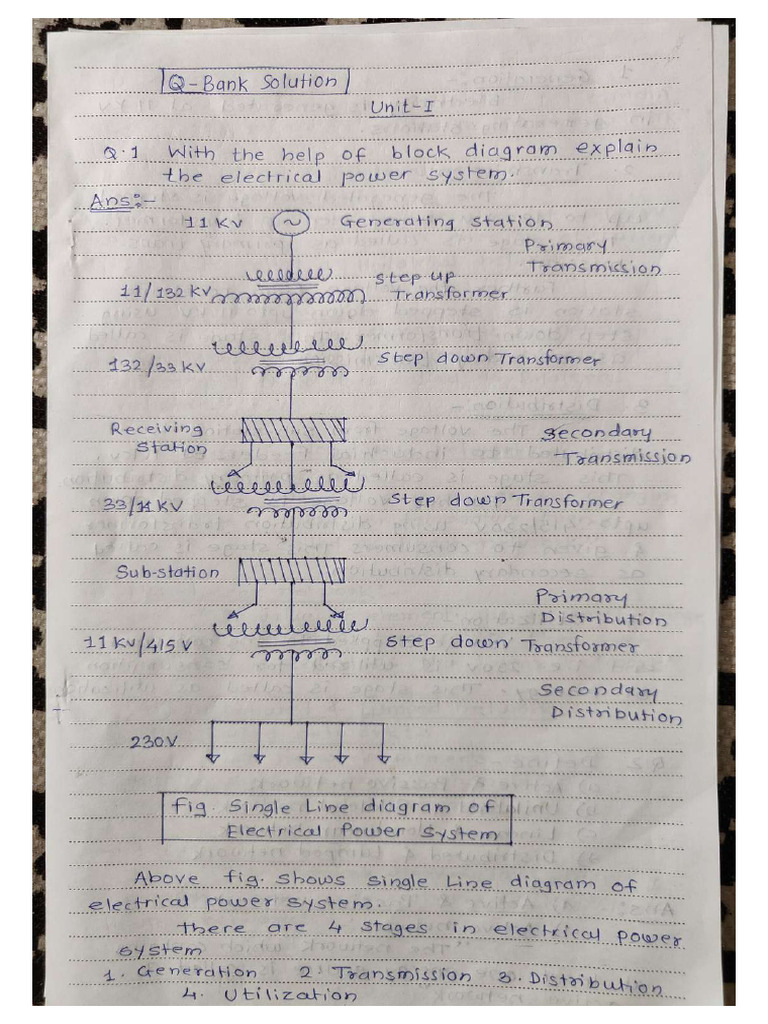 Q-Bank Solution
Unit-I
Q.1 With the help of block diagram explain
the electrical power system.
Ans:-
11 KV ~ Generating station
Primary
Transmission
Step up
Transformer
11/132 KV
132/33 KV
Step down Transformer
Receiving
Station
Secondary
Transmission
33/11 KV
Step down Transformer
Sub-station
Primary
Distribution
11 KV/415 V
Step down Transformer
Secondary
Distribution
230V
fig. Single Line diagram of
Electrical Power System
Above fig. shows single Line diagram of
electrical power system.
there are 4 stages in electrical power
system
1. Generation 2. Transmission 3. Distribution
4. Utilization